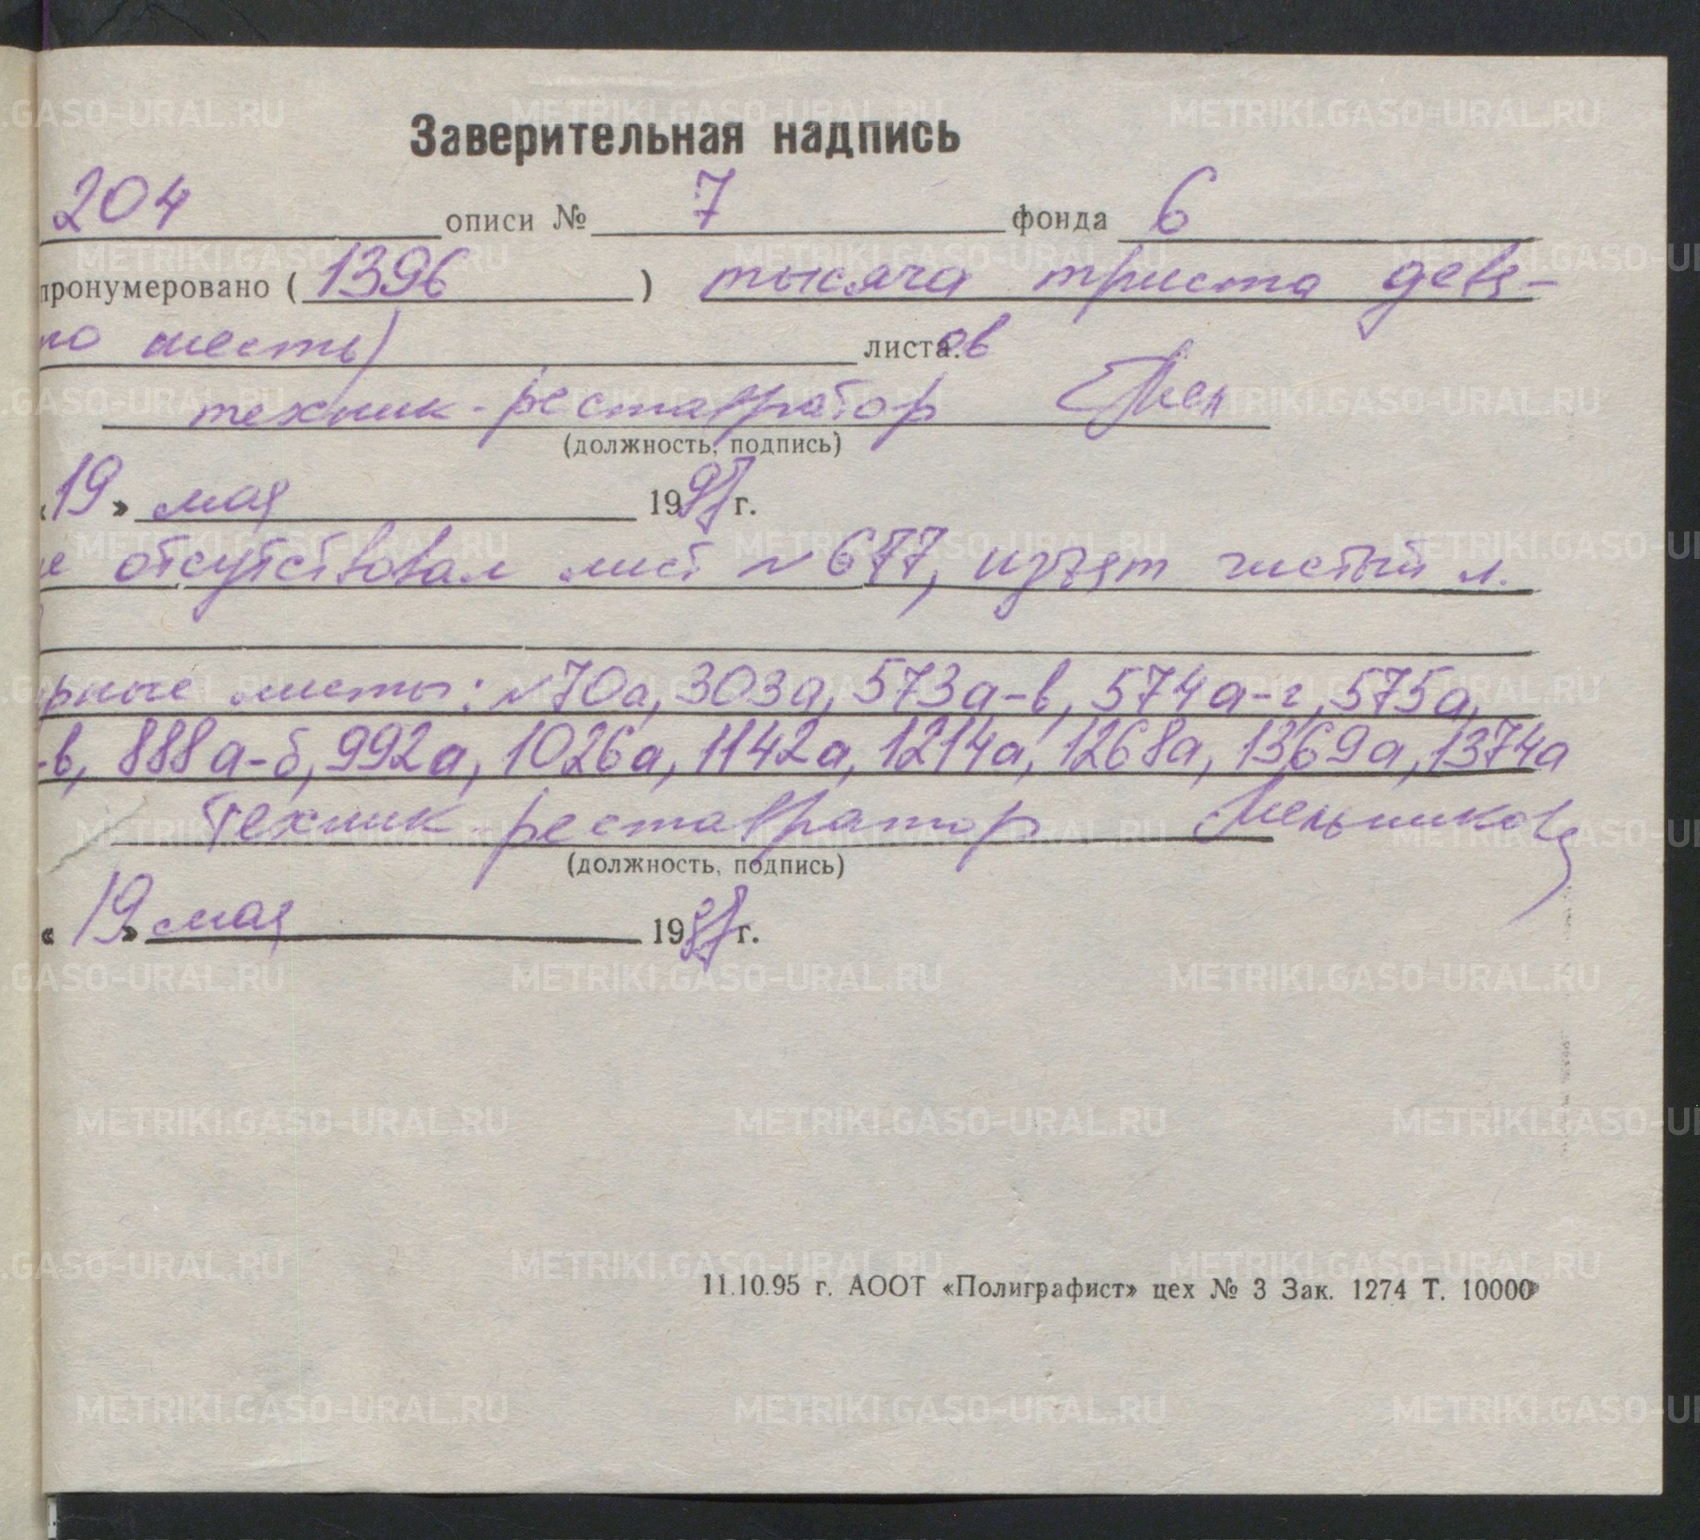 Заверительная надпись
204 описи № 7 фонда 6
пронумеровано (1396) тысяча триста девя-
но шесть) листа.ов
техник-реставратор
(должность, подпись)
«19» мая 1997 г.
е отсутствовал лист № 677, изъят чистый л.
рные листы: №70а, 303а, 573а-в, 574а-г, 575а,
-в, 888а-б, 992а, 1026а, 1142а, 1214а, 1268а, 1369а, 1374а
техник-реставратор Мельникова
(должность, подпись)
«19» мая 1997 г.
11.10.95 г. АООТ «Полиграфист» цех № 3 Зак. 1274 Т. 10000
METRIKI.GASO-URAL.RU